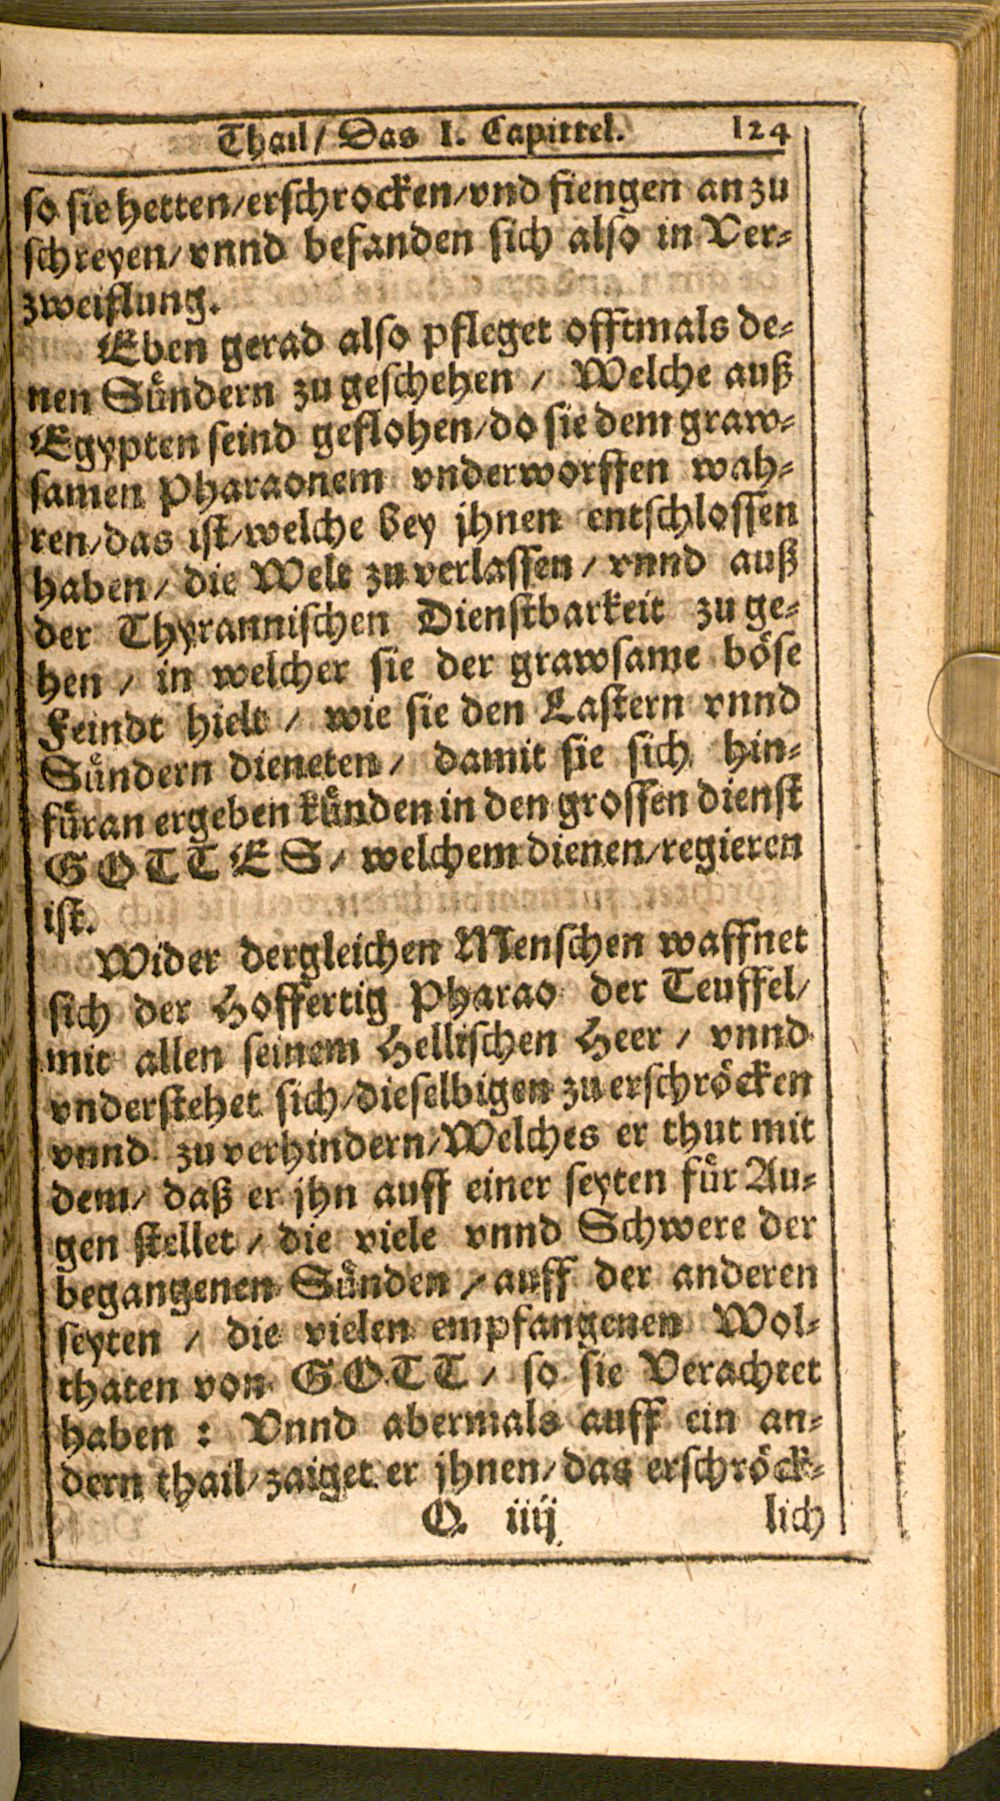 Thail / Das I. Capittel. 124
so sie hetten / erschrocken / vnd fiengen an zu
schreyen / vnnd befanden sich also in Ver-
zweiflung.
Eben gerad also pfleget offtmals de-
nen Sündern zu geschehen / Welche auß
Egypten seind geflohen / do sie dem graw-
samen Pharaonem vnderworffen wah-
ren / das ist / welche bey jhnen entschlossen
haben / die Welt zu verlassen / vnnd auß
der Thyrannischen Dienstbarkeit zu ge-
hen / in welcher sie der grawsame böse
Feindt hielt / wie sie den Lastern vnnd
Sündern dieneten / damit sie sich hin-
füran ergeben künden in den grossen dienst
GOTTES / welchem dienen / regieren
ist.
Wider dergleichen Menschen waffnet
sich der Hoffertig Pharao der Teuffel /
mit allen seinem Hellischen Heer / vnnd
vnderstehet sich / dieselbigen zu erschröcken
vnnd zu verhindern / Welches er thut mit
dem / daß er jhn auff einer seyten für Au-
gen stellet / die viele vnnd Schwere der
begangenen Sünden / auff der anderen
seyten / die vielen empfangenen Wol-
thaten von GOTT / so sie Verachtet
haben : Vnnd abermals auff ein an-
dern thail / zaiget er jhnen / das erschröck-
Q iiij lich